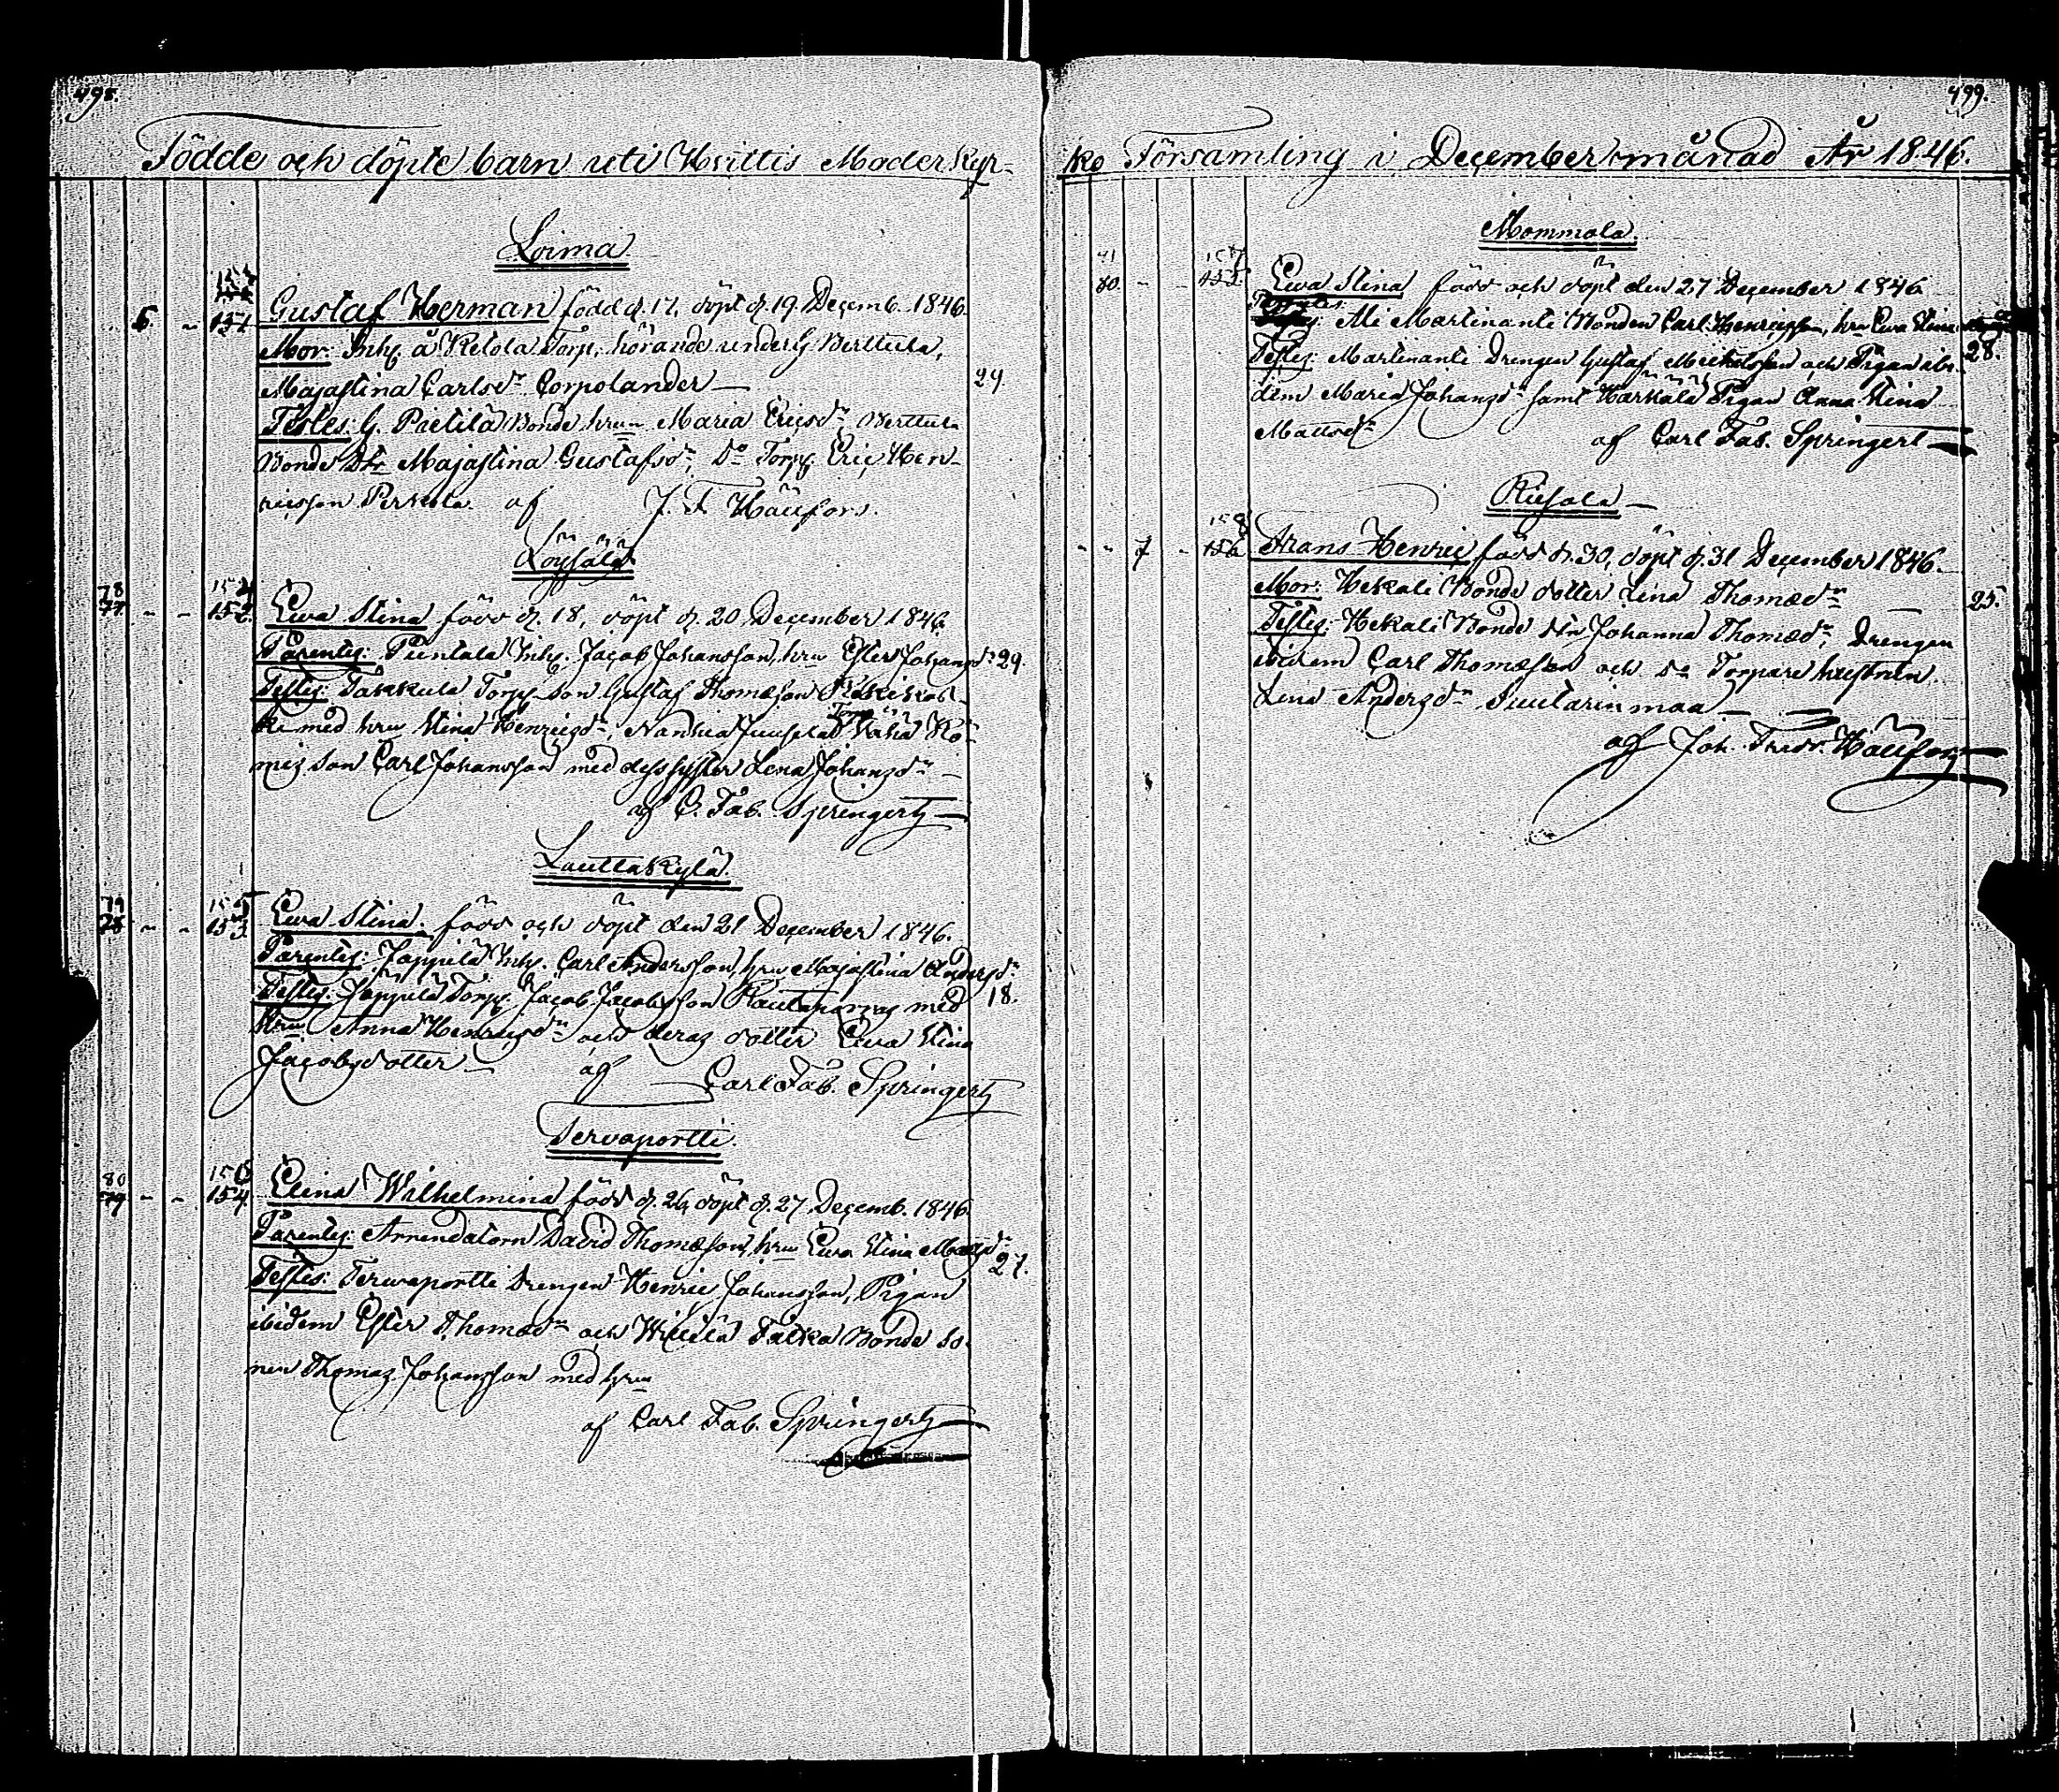 498.
Födde och döpte barn uti Hvittis Moderkyr-
Loima
153
5. - 151. Gustaf Herman född d. 17, döpt d. 19 Decemb. 1846.
Mor: Inhs. å Ketola Torp, hörande under G Berttula,
Majastina Carlsdr Corpolander — 29
Testes: G. Pietilä Bonde hru Maria Ericsdr, Berttula
Bonde Dtr Majastina Gustafsdr, Do Torp. Eric Hen-
ricsson Perkola. af J. F. Hällfors.
Löysälä
78 154
77. - - 152. Ewa Stina född d. 18, döpt d. 20 December 1846.
Parentes: Puntala Inhs. Jacob Johansson, hru Ester Johansdr 29.
Testes: Takkula Torp. Son Gustaf Thomasson Koskikal-
ki med hru Stina Henricsdr, Torp. Vähä Ro-
mis son Carl Johansson med dess syster Lena Johansdr —
af C. Fab. Springert
Lauttakylä
79 155
78 - - 153. Ewa Stina. född och döpt den 21 December 1846.
Parentes: Jappilä Inhs. Carl Andersson, hru Majastina Andersdr
Testes: Jappilä Torp. Jacob Jacobsson Rautaporras med 18.
hru Anna Henricsdr och deras dotter Ewa Stina
Jacobsdotter — af Carl Fab. Springert
Tervaportti.
80 156
79 - - 154. Elina Wilhelmina född d. 26, döpt d. 27 Decemb. 1846.
Parentes: Arrendatorn David Thomasson, hru Ewa Stina Matsdr
Testes: Terwaportti Drengen Henric Johansson, Pigan 27.
ibidem Ester Thomasdr och Witilä Falka Bonde so-
nen Thomas Johansson med hru
af Carl Fab. Springert
499.
ko Församling i December månad År 1846.
Mommola.
81 157
80. - - 155. Ewa Stina född och döpt den 27 December 1846
Parentes: Ali Martinanti Bonden Carl Henricsson, hru Ewa Stina
Testes: Martinanti Drengen Gustaf Michelsson och Pigan ibi- 28.
dem Maria Johansdr samt Härkälä Pigan Anna Stina
Matsdr af Carl Fab. Springert
Riesola —
158
- - 7 - 156. Frans Henric född d. 30, döpt d. 31 December 1846.
Mor: Hekali Bonde dotter Lina Thomasdr — 25.
Testes: Hekali Bonde Dtr Johanna Thomasdr, Drengen
ibidem Carl Thomasson och Do Torpare hustrun
Lena Andersdr Suutarinmaa —
af Joh. Fredr. Hällfors